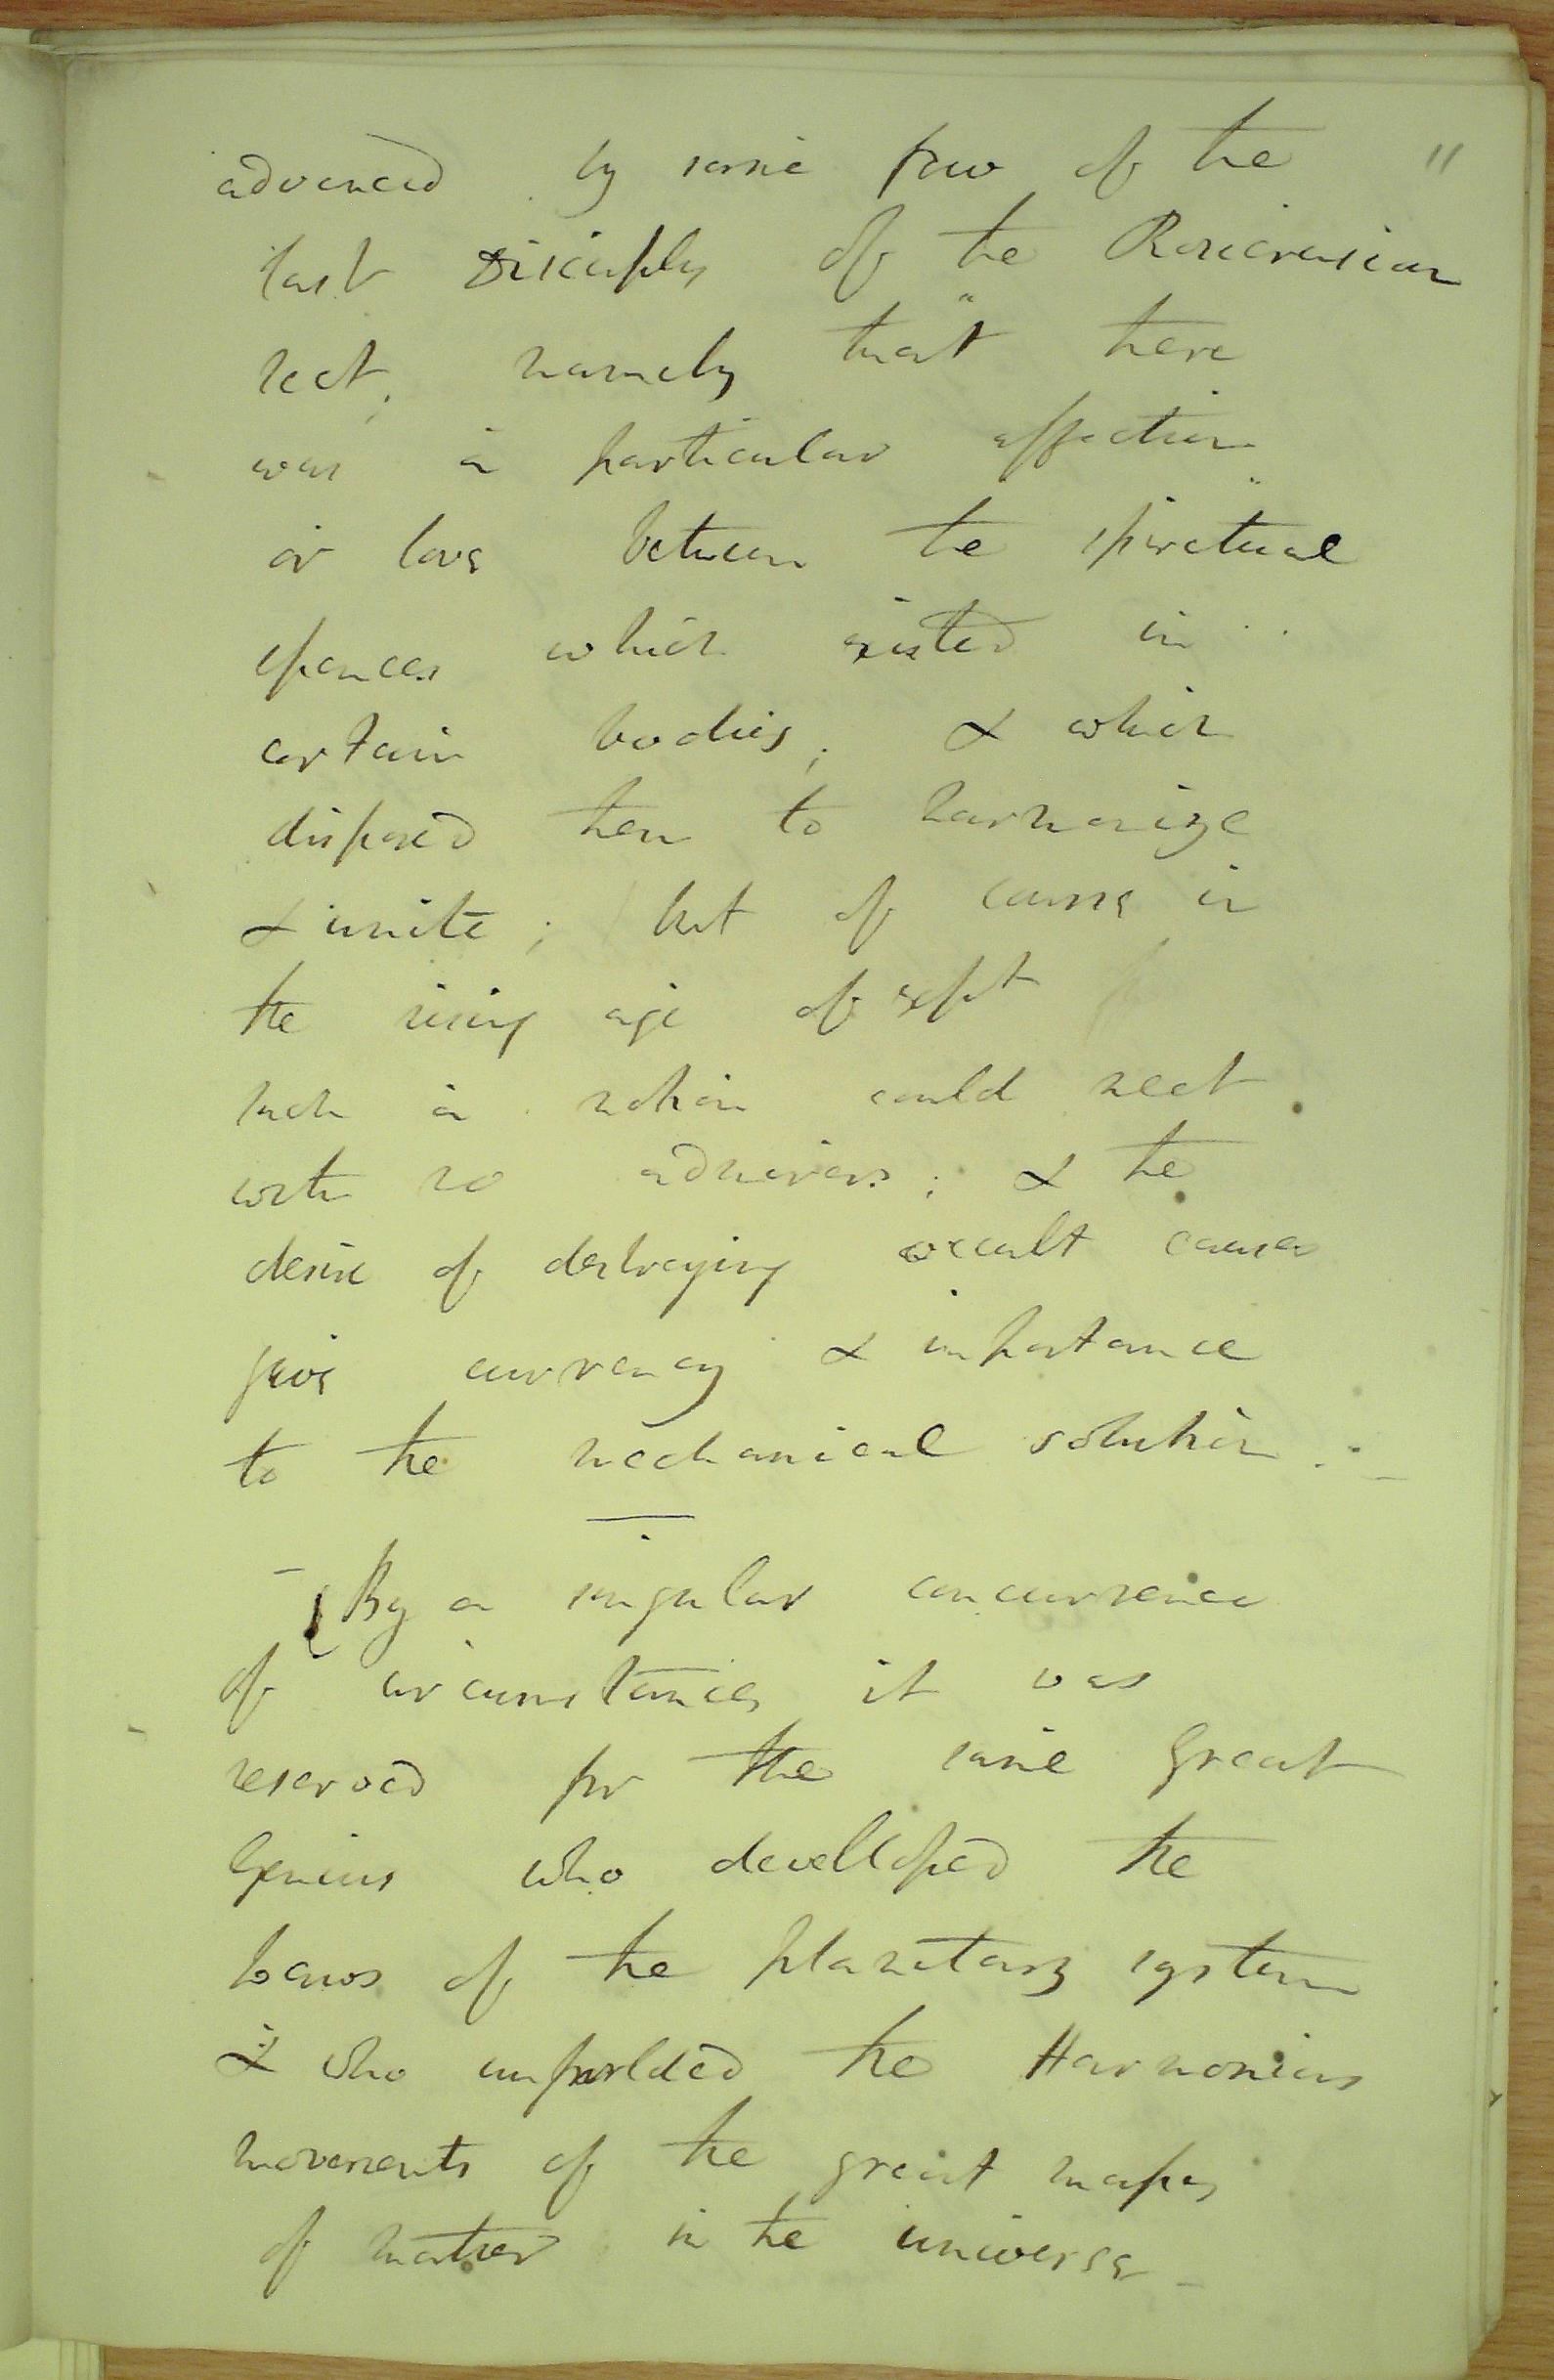 advanced by some few of the 11
last Disciples of the Rosicrusian
sect; namely "that there
was a particular affection"
or love between the spiritual
essences which existed in
certain bodies; & which
disposed them to harmonize
& unite; but of course in
the rising age of expt
such a notion could meet
with no admirers; & the
desire of destroying occult causes
give currency & importance
to the mechanical solution. -
- By a singular concurrence
of circumstances it was
reserved for the same great
Genius who develloped the
Laws of the planetary system
& who unfolded the Harmonious
movements of the great masses
of matter in the universe -